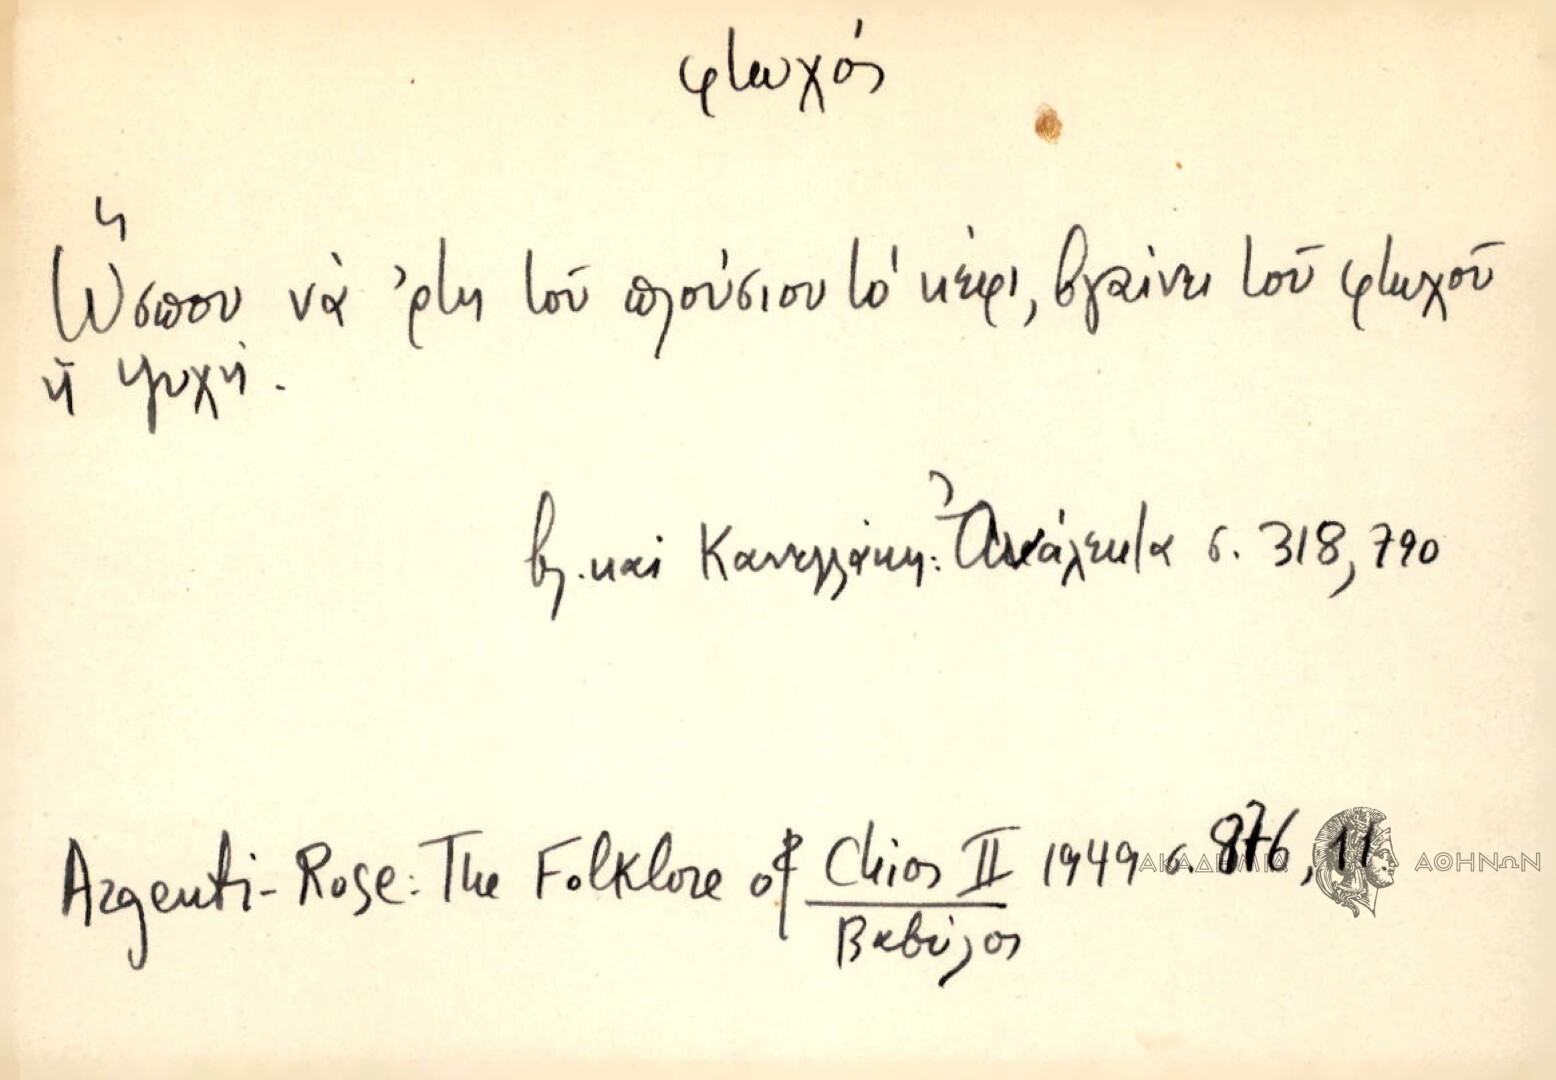 φτωχός
Ὥσπου νὰ ᾿ρτη τοῦ πλούσιου τὸ κέφι, βγαίνει τοῦ φτωχοῦ
ἡ ψυχή.
βλ. καὶ Κανελλάκη: Ἀνάλεκτα σ. 318, 790
Argenti-Rose: The Folklore of Chios II 1949 σ. 876, 11
Βαβύλος
ΑΚΑΔΗΜΙΑ ΑΘΗΝΩΝ